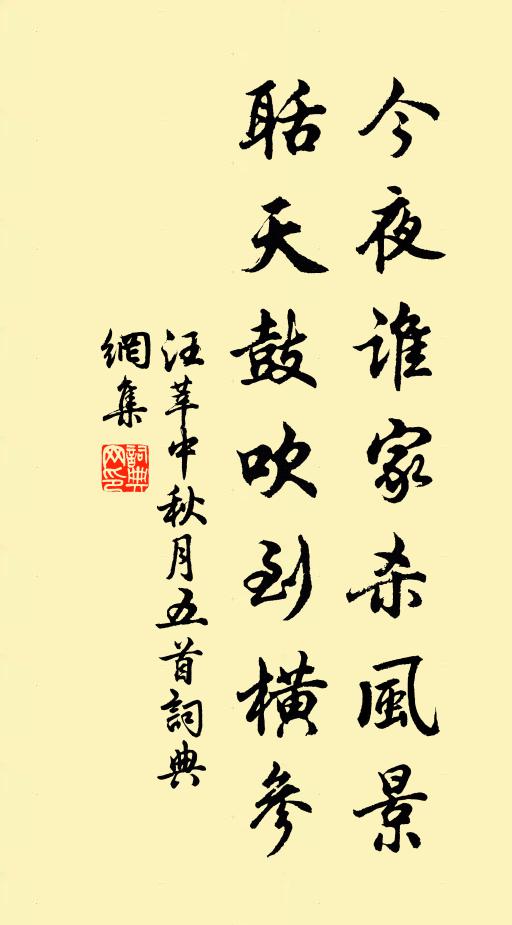 今夜谁家杀風景
聒天鼓吹到横参
汪莘中秋月五首詞典
網集
詞典
网印